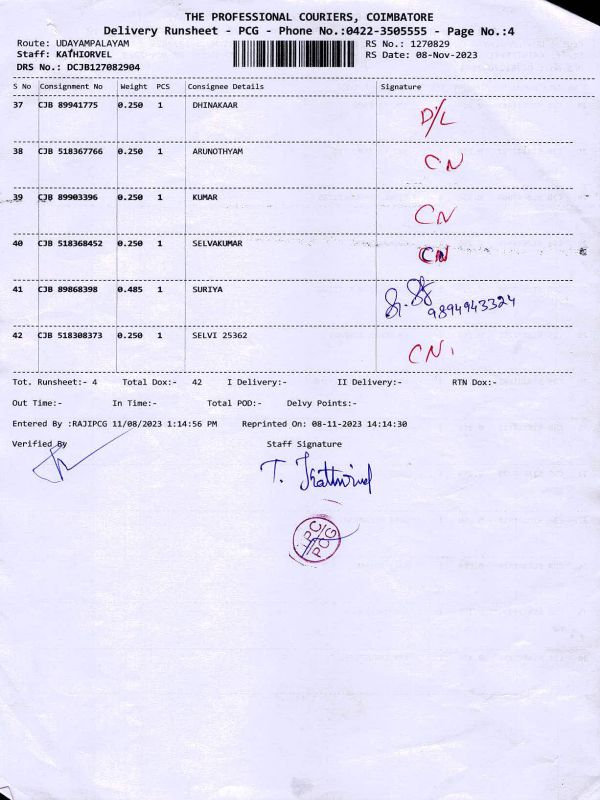 THE PROFESSIONAL COURIERS, COIMBATORE
Delivery Runsheet - PCG - Phone No.:0422-3505555 - Page No.:4
Route: UDAYAMPALAYAM RS No.: 1270829
Staff: KATHIORVEL RS Date: 08-Nov-2023
DRS No.: DCJB127082904
S No Consignment No Weight PCS Consignee Details Signature
37 CJB 89941775 0.250 1 DHINAKAAR D/L
38 CJB 518367766 0.250 1 ARUNOTHYAM CN
39 CJB 89903396 0.250 1 KUMAR CN
40 CJB 518368452 0.250 1 SELVAKUMAR CN
41 CJB 89868398 0.485 1 SURIYA 9894943324
42 CJB 518308373 0.250 1 SELVI 25362 CN
Tot. Runsheet:- 4 Total Dox:- 42 I Delivery:- II Delivery:- RTN Dox:-
Out Time:- In Time:- Total POD:- Delvy Points:-
Entered By :RAJIPCG 11/08/2023 1:14:56 PM Reprinted On: 08-11-2023 14:14:30
Verified By Staff Signature
T. Kathirvel
PC
PCG